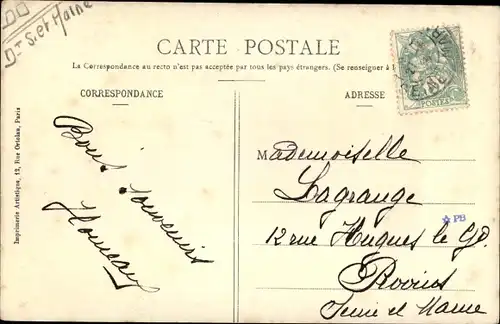 Dt S. et Marne
CARTE POSTALE
La Correspondance au recto n'est pas acceptée par tous les pays étrangers. (Se renseigner à l
CORRESPONDANCE
ADRESSE
POSTES
Bons souvenirs
Mademoiselle
Lagrange
12 rue Hugues le Gd
Provins
Seine et Marne
Imprimerie Artistique, 12, Rue Ortolan, Paris
PB